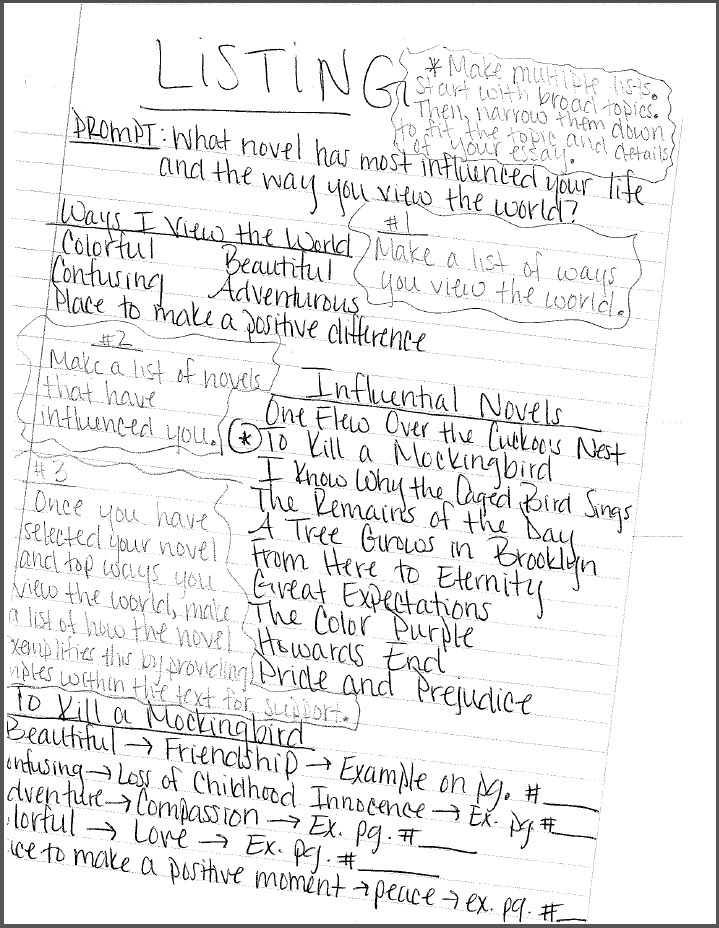 LISTING
* Make multiple lists.
Start with broad topics.
Then, narrow them down
to fit the topic and details
of your essay.
PROMPT: What novel has most influenced your life
and the way you view the world?
Ways I View the World
Colorful Beautiful
Confusing Adventurous
Place to make a positive difference
#1
Make a list of ways
you view the world.
#2
Make a list of novels
that have
influenced you.
Influential Novels
One Flew Over the Cuckoo's Nest
* To Kill a Mockingbird
I Know Why the Caged Bird Sings
The Remains of the Day
A Tree Grows in Brooklyn
From Here to Eternity
Great Expectations
The Color Purple
Howards End
Pride and Prejudice
#3
Once you have
selected your novel
and top ways you
view the world, make
a list of how the novel
xemplifies this by providing
mples within the text for support.
To Kill a Mockingbird
Beautiful → Friendship → Example on pg. #____
onfusing → Loss of Childhood Innocence → Ex. pg. #____
dventure → Compassion → Ex. pg. #____
lorful → Love → Ex. pg. #____
ace to make a positive moment → peace → ex. pg. #__